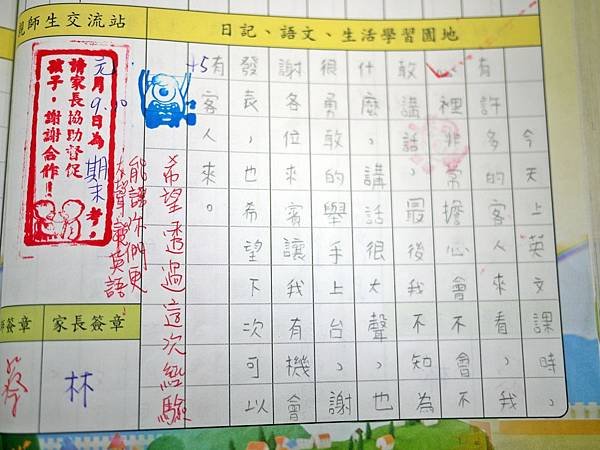 親師生交流站
日記、語文、生活學習園地
今天上英文課時，
有許多的客人來看，我
心裡非常擔心會不會不
敢講話，最後我不知為
什麼，講話很大聲，也
很勇敢的舉手上台，謝
謝各位來賓讓我有機會
發表，也希望下次可以
有客人來。
+5
希望透過這次經驗
能讓你們更
大聲說英語
元月9.10日為期末考。
請家長協助督促
孩子，謝謝合作！
師簽章
家長簽章
蔡
林